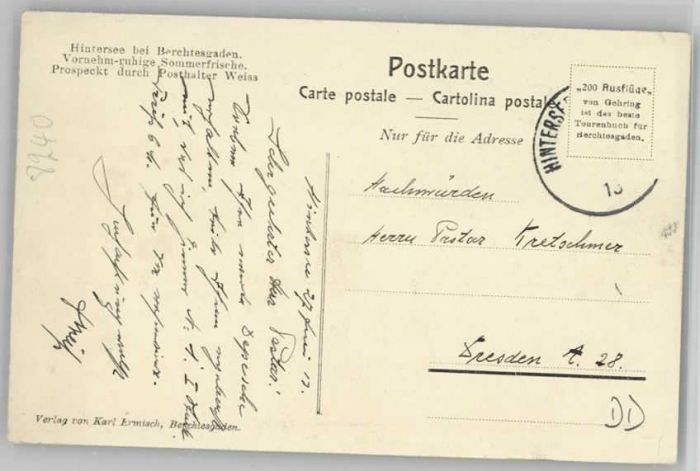 Hintersee bei Berchtesgaden.
Vornehm-ruhige Sommerfrische.
Prospeckt durch Posthalter Weiss
Postkarte
Carte postale — Cartolina postale
Nur für die Adresse
„200 Ausflüge“
von Gehring
ist das beste
Tourenbuch für
Berchtesgaden.
HINTERSEE
13
8240
Hochwürden
Herrn Pastor Kretschmer
Dresden A. 28.
DD
Hintersee 27 Juni 13.
Sehr geehrter Herr Pastor!
Depesche
erhalten, teile Ihnen
mit daß ich Zimmer N. 4. I Stock
für Sie
Verlag von Karl Ermisch, Berchtesgaden.